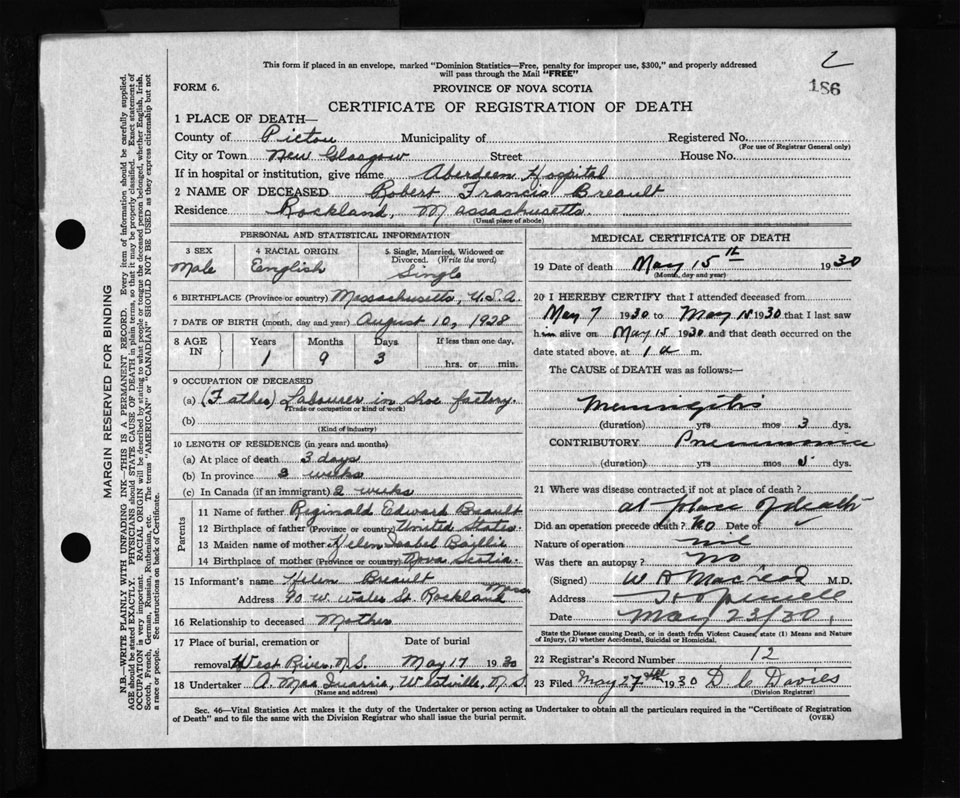 2
186
This form if placed in an envelope, marked "Dominion Statistics—Free, penalty for improper use, $300," and properly addressed
will pass through the Mail "FREE"
FORM 6. PROVINCE OF NOVA SCOTIA
CERTIFICATE OF REGISTRATION OF DEATH
1 PLACE OF DEATH—
County of Pictou Municipality of Registered No.
(For use of Registrar General only)
City or Town New Glasgow Street House No.
If in hospital or institution, give name Aberdeen Hospital
2 NAME OF DECEASED Robert Francis Breault
Residence Rockland, Massachusetts.
(Usual place of abode)
PERSONAL AND STATISTICAL INFORMATION
3 SEX 4 RACIAL ORIGIN 5 Single, Married, Widowed or Divorced. (Write the word)
Male English Single
6 BIRTHPLACE (Province or country) Massachusetts, U.S.A.
7 DATE OF BIRTH (month, day and year) August 10, 1928
8 AGE IN Years Months Days If less than one day,
1 9 3 hrs. or min.
9 OCCUPATION OF DECEASED
(a) (Father) Labourer in shoe factory.
(Trade or occupation or kind of work)
(b)
(Kind of industry)
10 LENGTH OF RESIDENCE (in years and months)
(a) At place of death 3 days
(b) In province 3 weeks
(c) In Canada (if an immigrant) 2 weeks
Parents
11 Name of father Reginald Edward Breault
12 Birthplace of father (Province or country) United States.
13 Maiden name of mother Helen Isabel Baillie
14 Birthplace of mother (Province or country) Nova Scotia.
15 Informant's name Helen Breault
Address 90 W. Water St. Rockland Mass
16 Relationship to deceased Mother
17 Place of burial, cremation or Date of burial
removal West River, N.S. May 17 1930
18 Undertaker A. Mac Quarrie, Westville, N.S.
(Name and address)
MEDICAL CERTIFICATE OF DEATH
19 Date of death May 15th 1930
(Month, day and year)
20 I HEREBY CERTIFY that I attended deceased from
May 7 1930 to May 15 1930 that I last saw
him alive on May 15 1930 and that death occurred on
date stated above, at 1 a m.
The CAUSE of DEATH was as follows:—
Meningitis
(duration) yrs mos 3 dys.
CONTRIBUTORY Pneumonia
(duration) yrs mos 5 dys.
21 Where was disease contracted if not at place of death?
at place of death
Did an operation precede death? No Date of
Nature of operation nil
Was there an autopsy? no
(Signed) W A MacLeod M.D.
Address Hopewell
Date May 23/30,
State the Disease causing Death, or in death from Violent Causes, state (1) Means and Nature
of Injury, (2) whether Accidental, Suicidal or Homicidal.
22 Registrar's Record Number 12
23 Filed May 27th 1930 D. C. Davies
(Division Registrar)
Sec. 46—Vital Statistics Act makes it the duty of the Undertaker or person acting as Undertaker to obtain all the particulars required in the "Certificate of Registration
of Death" and to file the same with the Division Registrar who shall issue the burial permit.
(OVER)
MARGIN RESERVED FOR BINDING
N.B.—WRITE PLAINLY WITH UNFADING INK—THIS IS A PERMANENT RECORD. Every item of information should be carefully supplied.
AGE should be stated EXACTLY. PHYSICIANS should STATE CAUSE OF DEATH in plain terms, so that it may be properly classified. Exact statement of
OCCUPATION is very important. RACIAL ORIGIN will be described by stating to what people or tongue the deceased person belonged, whether English, Irish,
Scotch, French, German, Russian, Ruthenian, etc. The terms "AMERICAN" or "CANADIAN" SHOULD NOT BE USED as they express citizenship but not
a race or people. See instructions on back of Certificate.